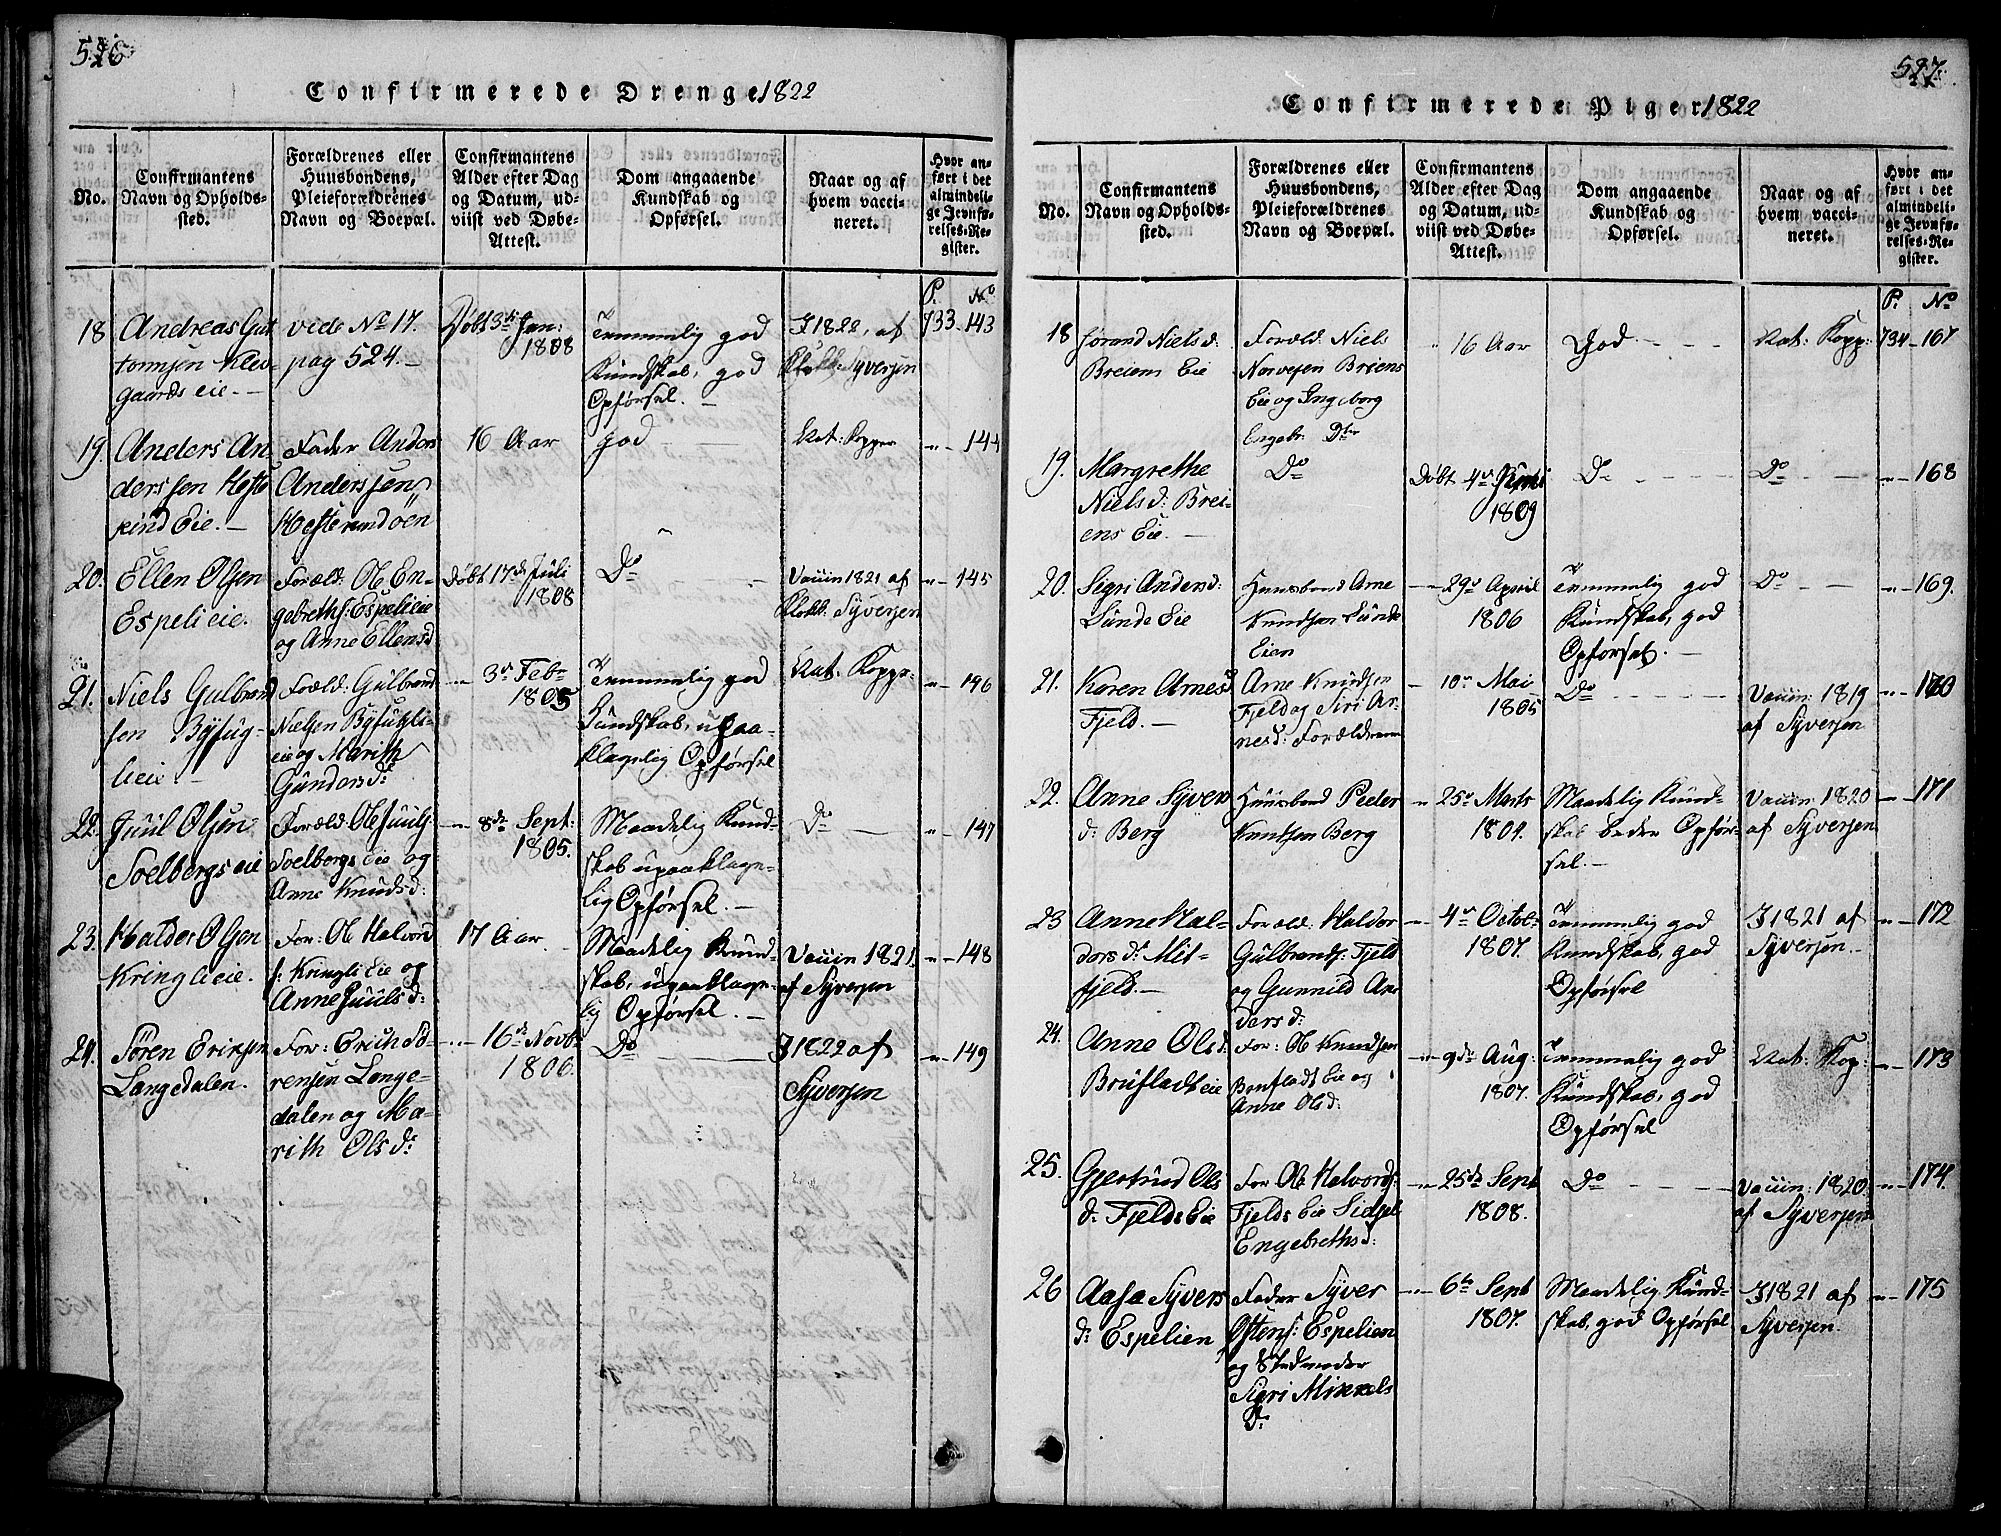 526
Confirmerede Drenge 1822
No.
Confirmantens
Navn og Opholds-
sted.
Forældrenes eller
Huusbondens,
Pleieforældrenes
Navn og Boepæl.
Confirmantens
Alder efter Dag
og Datum, ud-
viist ved Døbe-
Attest.
Dom angaaende
Kundskab og
Opførsel.
Naar og af
hvem vacci-
neret.
Hvor an-
ført i det
almindeli-
ge Jevnfø-
relses-Re-
gister.
P. No
18
Andreas Gut
tormsen Klev-
gaards eie.-
vide No 17.
pag 524.-
Døbt 3de Jan:
1808
Temmelig god
Kundskab, god
Opførsel.-
I 1822, af
Klokk: Syversen
733-143
19.
Anders An-
derssen Heste
rind Eie.-
Fader Anders
Anderssen
Hesterundöen
16 Aar
God
Nat: Kopper
"-144
20.
Ellen Olsen
Espeli eie.
Foræld: Ole En-
gebreths: Espelieie
og Anne Ellensd
Døbt 17de Juli
1808
Do
Vaccin 1821 af
Klokk: Syversen
"-145
21.
Niels Gulbrand
sen Byfug-
lieie-
Foræld: Gulbrand
Nielsen Byfugli-
eie og Marith
Gundersd:
-"- 3de Feb-
1805
Temmelig god
Kundskab, upaa-
klagelig Opførsel
Nat. Kopper
"-146
22.
Juul Olsen
Soelbergs eie
Foræld: Ole Juuls:
Soelbergs eie og
Anne Knudsd:
-"- 8de Sept:
1805.
Maadelig Kund-
skab upaaklage-
lig Opførsel.-
Do
"-147
23.
Haldor Olsen
Kringlieie.
For: Ole Halvord
s: Kringli Eie og
Anne Juulsd:
17 Aar
Maadelig Kund-
skab, upaaklage-
lig Opførsel.-
Vaccin 1821.
af Syversen
"-148
24.
Søren Ericsen
Langedalen.
For: Erich Sø-
rensen Lange-
dalen og Ma-
rith Olsd:
-"- 16de Novb:
1806.
Do
I 1822 af
Syversen
"-149
527.
Confirmerede Piger 1822
No.
Confirmantens
Navn og Opholds-
sted.
Forældrenes eller
Huusbondens,
Pleieforældrenes
Navn og Boepæl.
Confirmantens
Alder efter Dag
og Datum, ud-
viist ved Døbe-
Attest.
Dom angaaende
Kundskab og
Opførsel.
Naar og af
hvem vacci-
neret.
Hvor an-
ført i det
almindeli-
ge Jevnfø-
relses-Re-
gister.
P. No
18
Jørand Nielsd:
Breiens Eie
Foræld: Niels
Norvesen Breiens
Eie og Ingeborg
Engebr. Dtr
16 Aar
God
Nat: Kopp:
734-167
19.
Margrethe
Nielsd: Brei-
ens Eie.-
Do
Døbt 4de
1809
Do
Do
"-168
20.
Sigri Andersd:
Lunde Eie
Huusbond Arne
Knudsen Lunde
Eien
-"- 29de April
1806
Temmelig god
Kundskab, god
Opførsel.
Do
"-169.
21.
Karen Arnesd
Fjeld.-
Arne Knudsen
Fjeld og Siri Ar-
nesd: Forældrene
-"- 10de Mai
1805
Do
Vaccin: 1819
af Syversen
"-170
22.
Anne Syvers
d: Berg
Huusbond Peder
Knudsen Berg
-"- 25de Marts
1804.
Maadelig Kund-
skab beder Opfør-
sel.-
Vaccin: 1820
af Syversen
"-171
23
Anne Hal-
dorsd: Mit-
fjeld.-
Foræld: Haldor
Gulbrands: Fjeld
og Gunnild An
dersd:
-"- 4de Octob:
1807.
Temmelig god
Kundskab, god
Opførsel
I 1821 af
Syversen.
"-172
24.
Anne Olsd:
Brufladt eie
For: Ole Knudsen
Brufladt Eie og
Anne Olsd:
-"- 9de Aug:
1807.
Temmelig god
Kundskab, god
Opførsel
Nat: Kop:
"-173
25.
Gjertrud Ols
d: Fjelds Eie
For Ole Halvords:
Fjelds Eie Sidsel
Engebrethsd:
-"- 25de Sept
1808.
Do
Vaccin: 1820.
af Syversen
"-174
26
Aasa Syvers
d: Espelien
Fader Syver
Ostens: Espelien
og Stedmoder
Sigri Mikkels
d:
-"- 6te Sept
1807.
Maadelig Kund-
skab, god Opførsel
I 1821 af
Syversen.
"-175